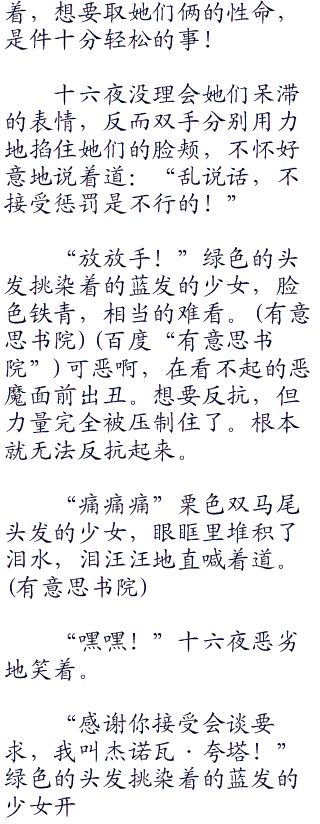 着，想要取她们俩的性命，
是件十分轻松的事！
十六夜没理会她们呆滞
的表情，反而双手分别用力
地掐住她们的脸颊，不怀好
意地说着道：“乱说话，不
接受惩罚是不行的！”
“放放手！”绿色的头
发挑染着的蓝发的少女，脸
色铁青，相当的难看。(有意
思书院)(百度“有意思书
院”)可恶啊，在看不起的恶
魔面前出丑。想要反抗，但
力量完全被压制住了。根本
就无法反抗起来。
“痛痛痛”栗色双马尾
头发的少女，眼眶里堆积了
泪水，泪汪汪地直喊着道。
(有意思书院)
“嘿嘿！”十六夜恶劣
地笑着。
“感谢你接受会谈要
求，我叫杰诺瓦·夸塔！”
绿色的头发挑染着的蓝发的
少女开